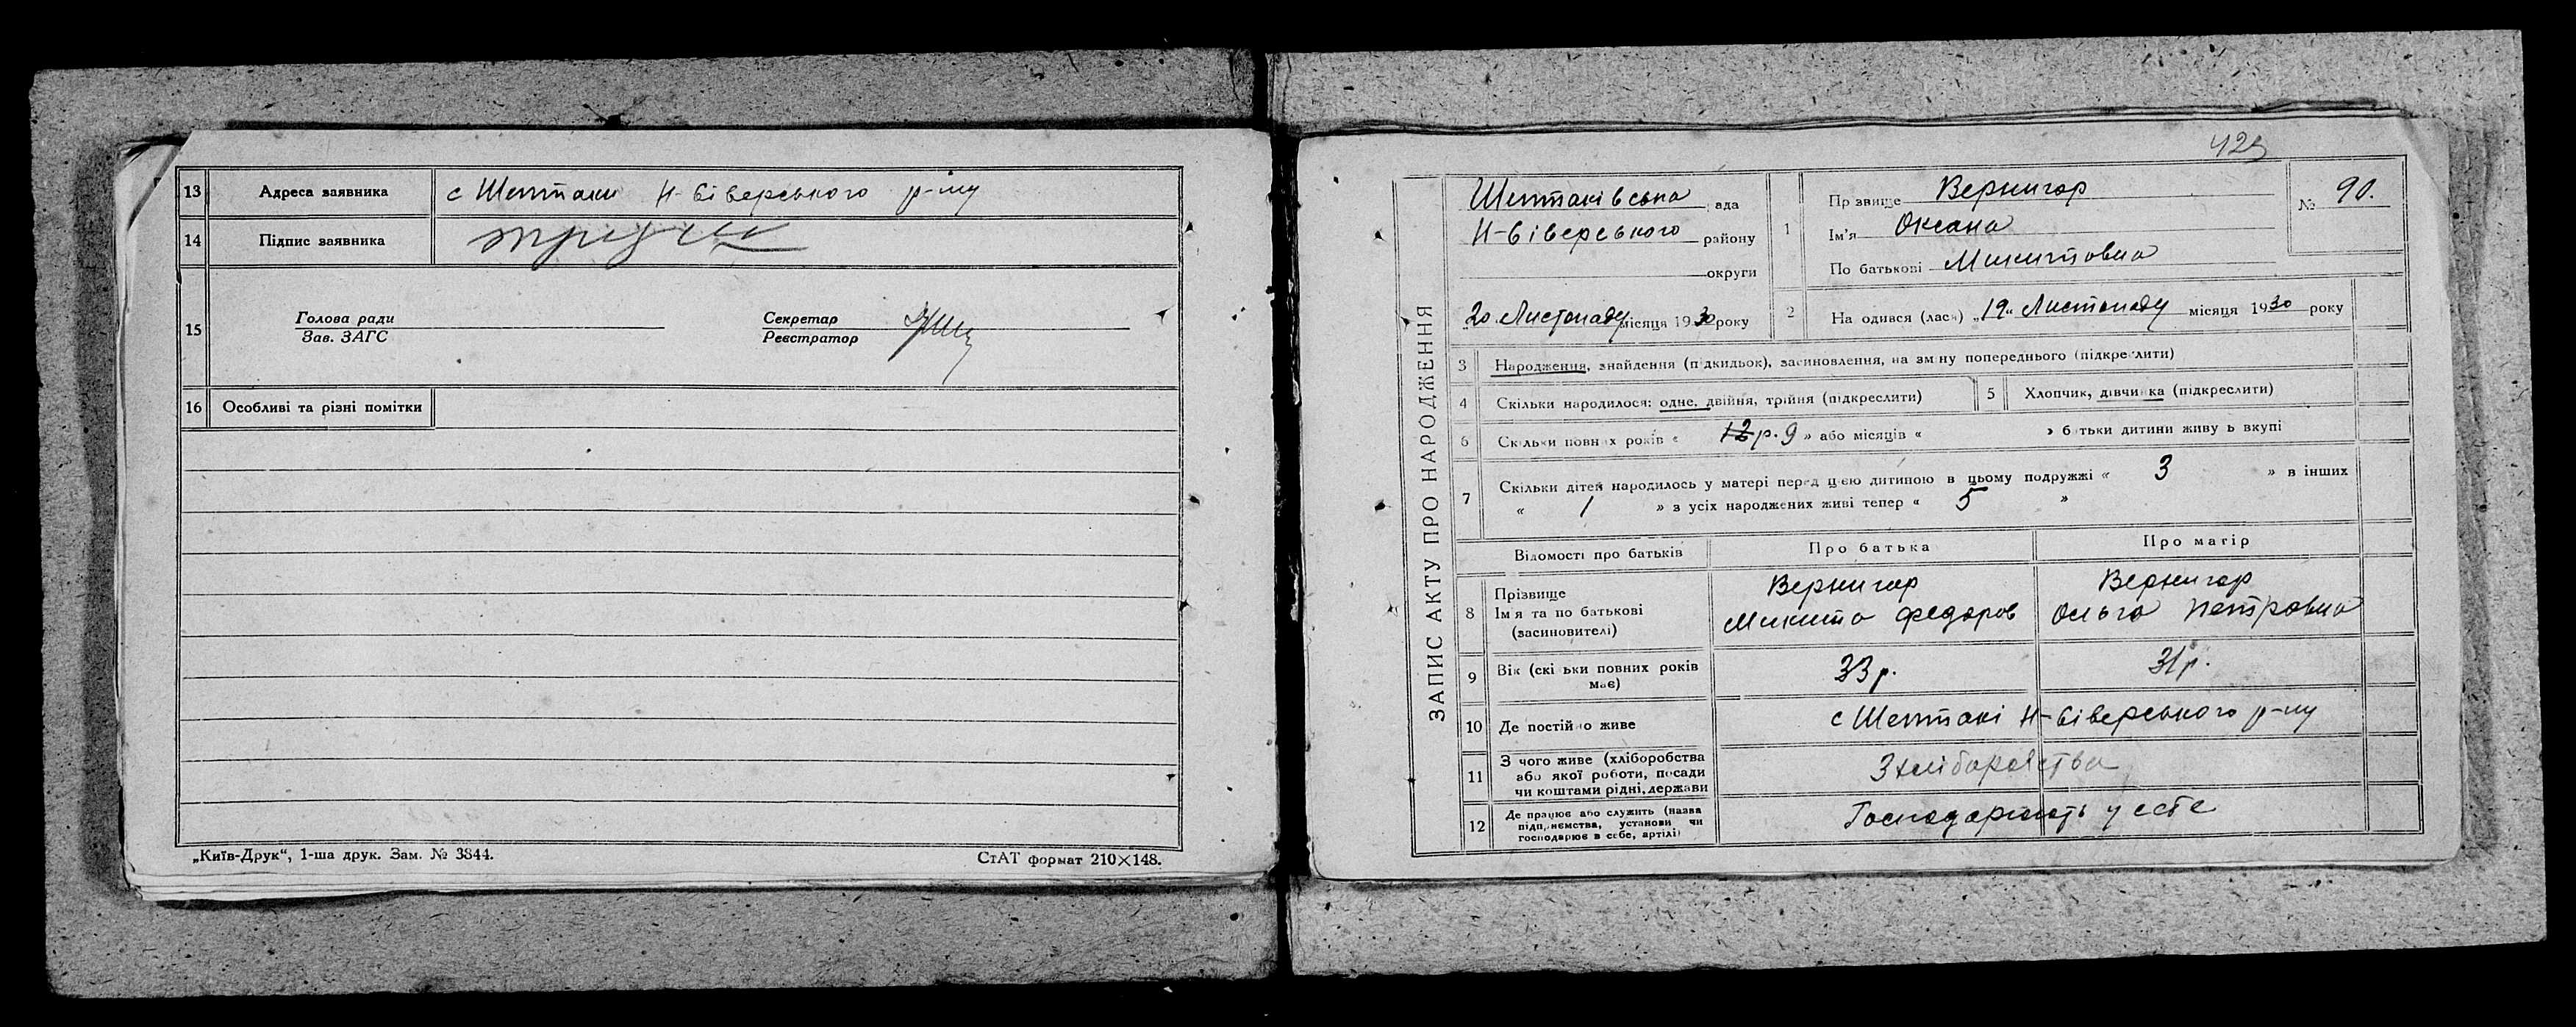 13 Адреса заявника с Шептаки Н-Сіверського р-ну
14 Підпис заявника
15 Голова ради
Зав. ЗАГС
Секретар
Реєстратор
16 Особливі та різні помітки
„Київ-Друк“, 1-ша друк. Зам. № 3844.
СтАТ формат 210×148.
425
ЗАПИС АКТУ ПРО НАРОДЖЕННЯ
Шептаківська рада
Н-Сіверського району
округи
20 Листопаду місяця 1930 року
1 Прізвище Вернигор
Ім'я Оксана
По батькові Микитовна
№ 90.
2 Народився (лася) „19“ Листопаду місяця 1930 року
3 Народження, знайдення (підкидьок), засиновлення, на зміну попереднього (підкреслити)
4 Скільки народилося: одне, двійня, трійня (підкреслити)
5 Хлопчик, дівчинка (підкреслити)
6 Скільки повних років « 12 р. 9 » або місяців « » батьки дитини живуть вкупі
7 Скільки дітей народилось у матері перед цією дитиною в цьому подружжі « 3 » в інших
« 1 » з усіх народжених живі тепер « 5 »
Відомості про батьків Про батька Про матір
8 Прізвище Вернигор Вернигор
Ім'я та по батькові Микита Федоров Ольга Петровна
(засиновителі)
9 Вік (скільки повних років має) 33 р. 31 р.
10 Де постійно живе с Шептакі Н-Сіверського р-ну
11 З чого живе (хліборобства
або якої роботи, посади
чи коштами рідні, держави
З хліборобства
12 Де працює або служить (назва
підприємства, установи чи
господарює в себе, артілі)
Господарюють у себе